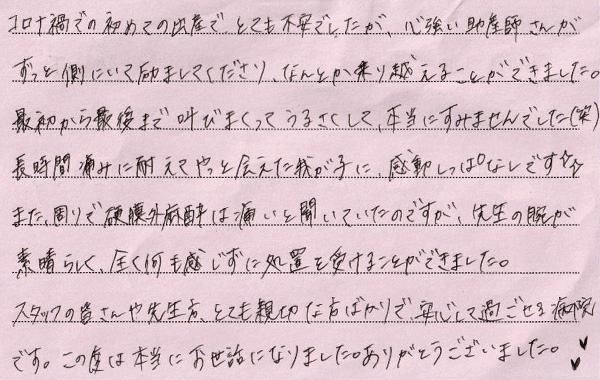 コロナ禍での初めての出産で とても不安でしたが、心強い助産師さんが
ずっと側にいて励ましてくださり、なんとか乗り越えることができました。
最初から最後まで 叫びまくって うるさくして、本当にすみませんでした(笑)
長時間 痛みに耐えて やっと会えた我が子に、感動しっぱなしです☆☆
また、周りで 硬膜外麻酔は痛いと聞いていたのですが、先生の腕が
素晴らしく、全く何も感じずに処置を受けることができました。
スタッフの皆さんや先生方、とても親切な方ばかりで、安心して過ごせる病院
です。この度は本当にお世話になりました。ありがとうございました。♥♥